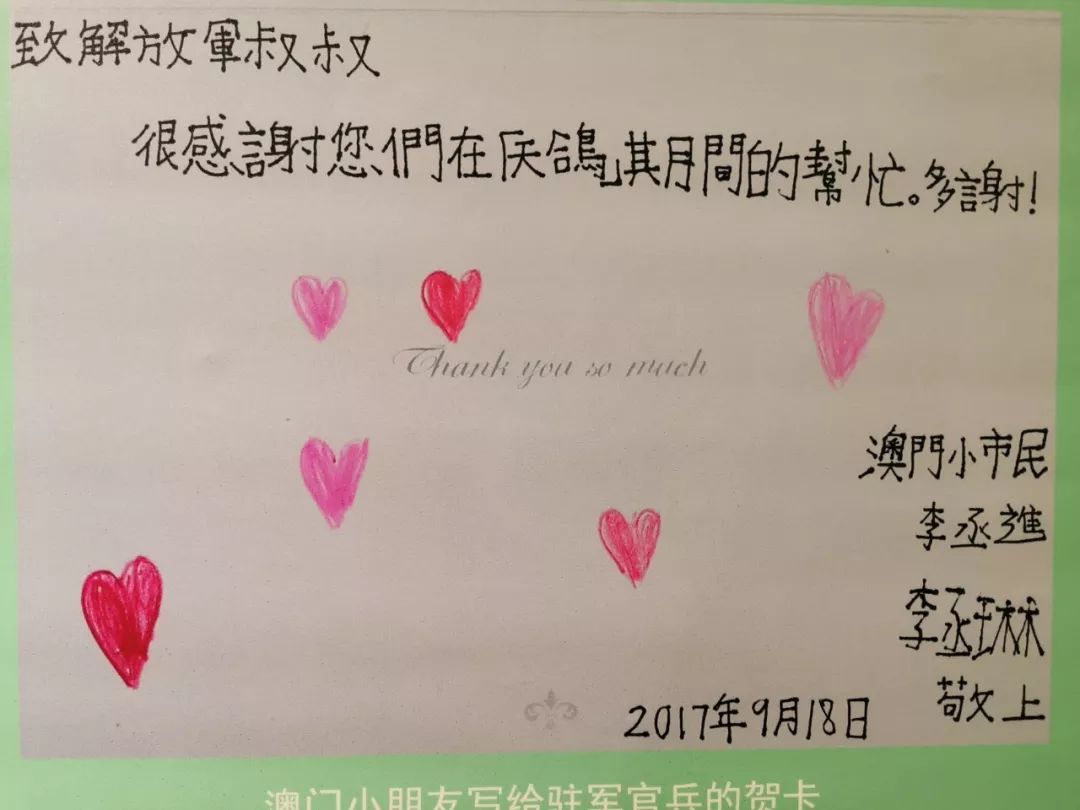 致解放軍叔叔
很感謝您們在天鴿其月間的幫忙。多謝!
Thank you so much
澳門小市民
李丞進
李丞琳
敬上
2017年9月18日
澳门小朋友写给驻军官兵的贺卡